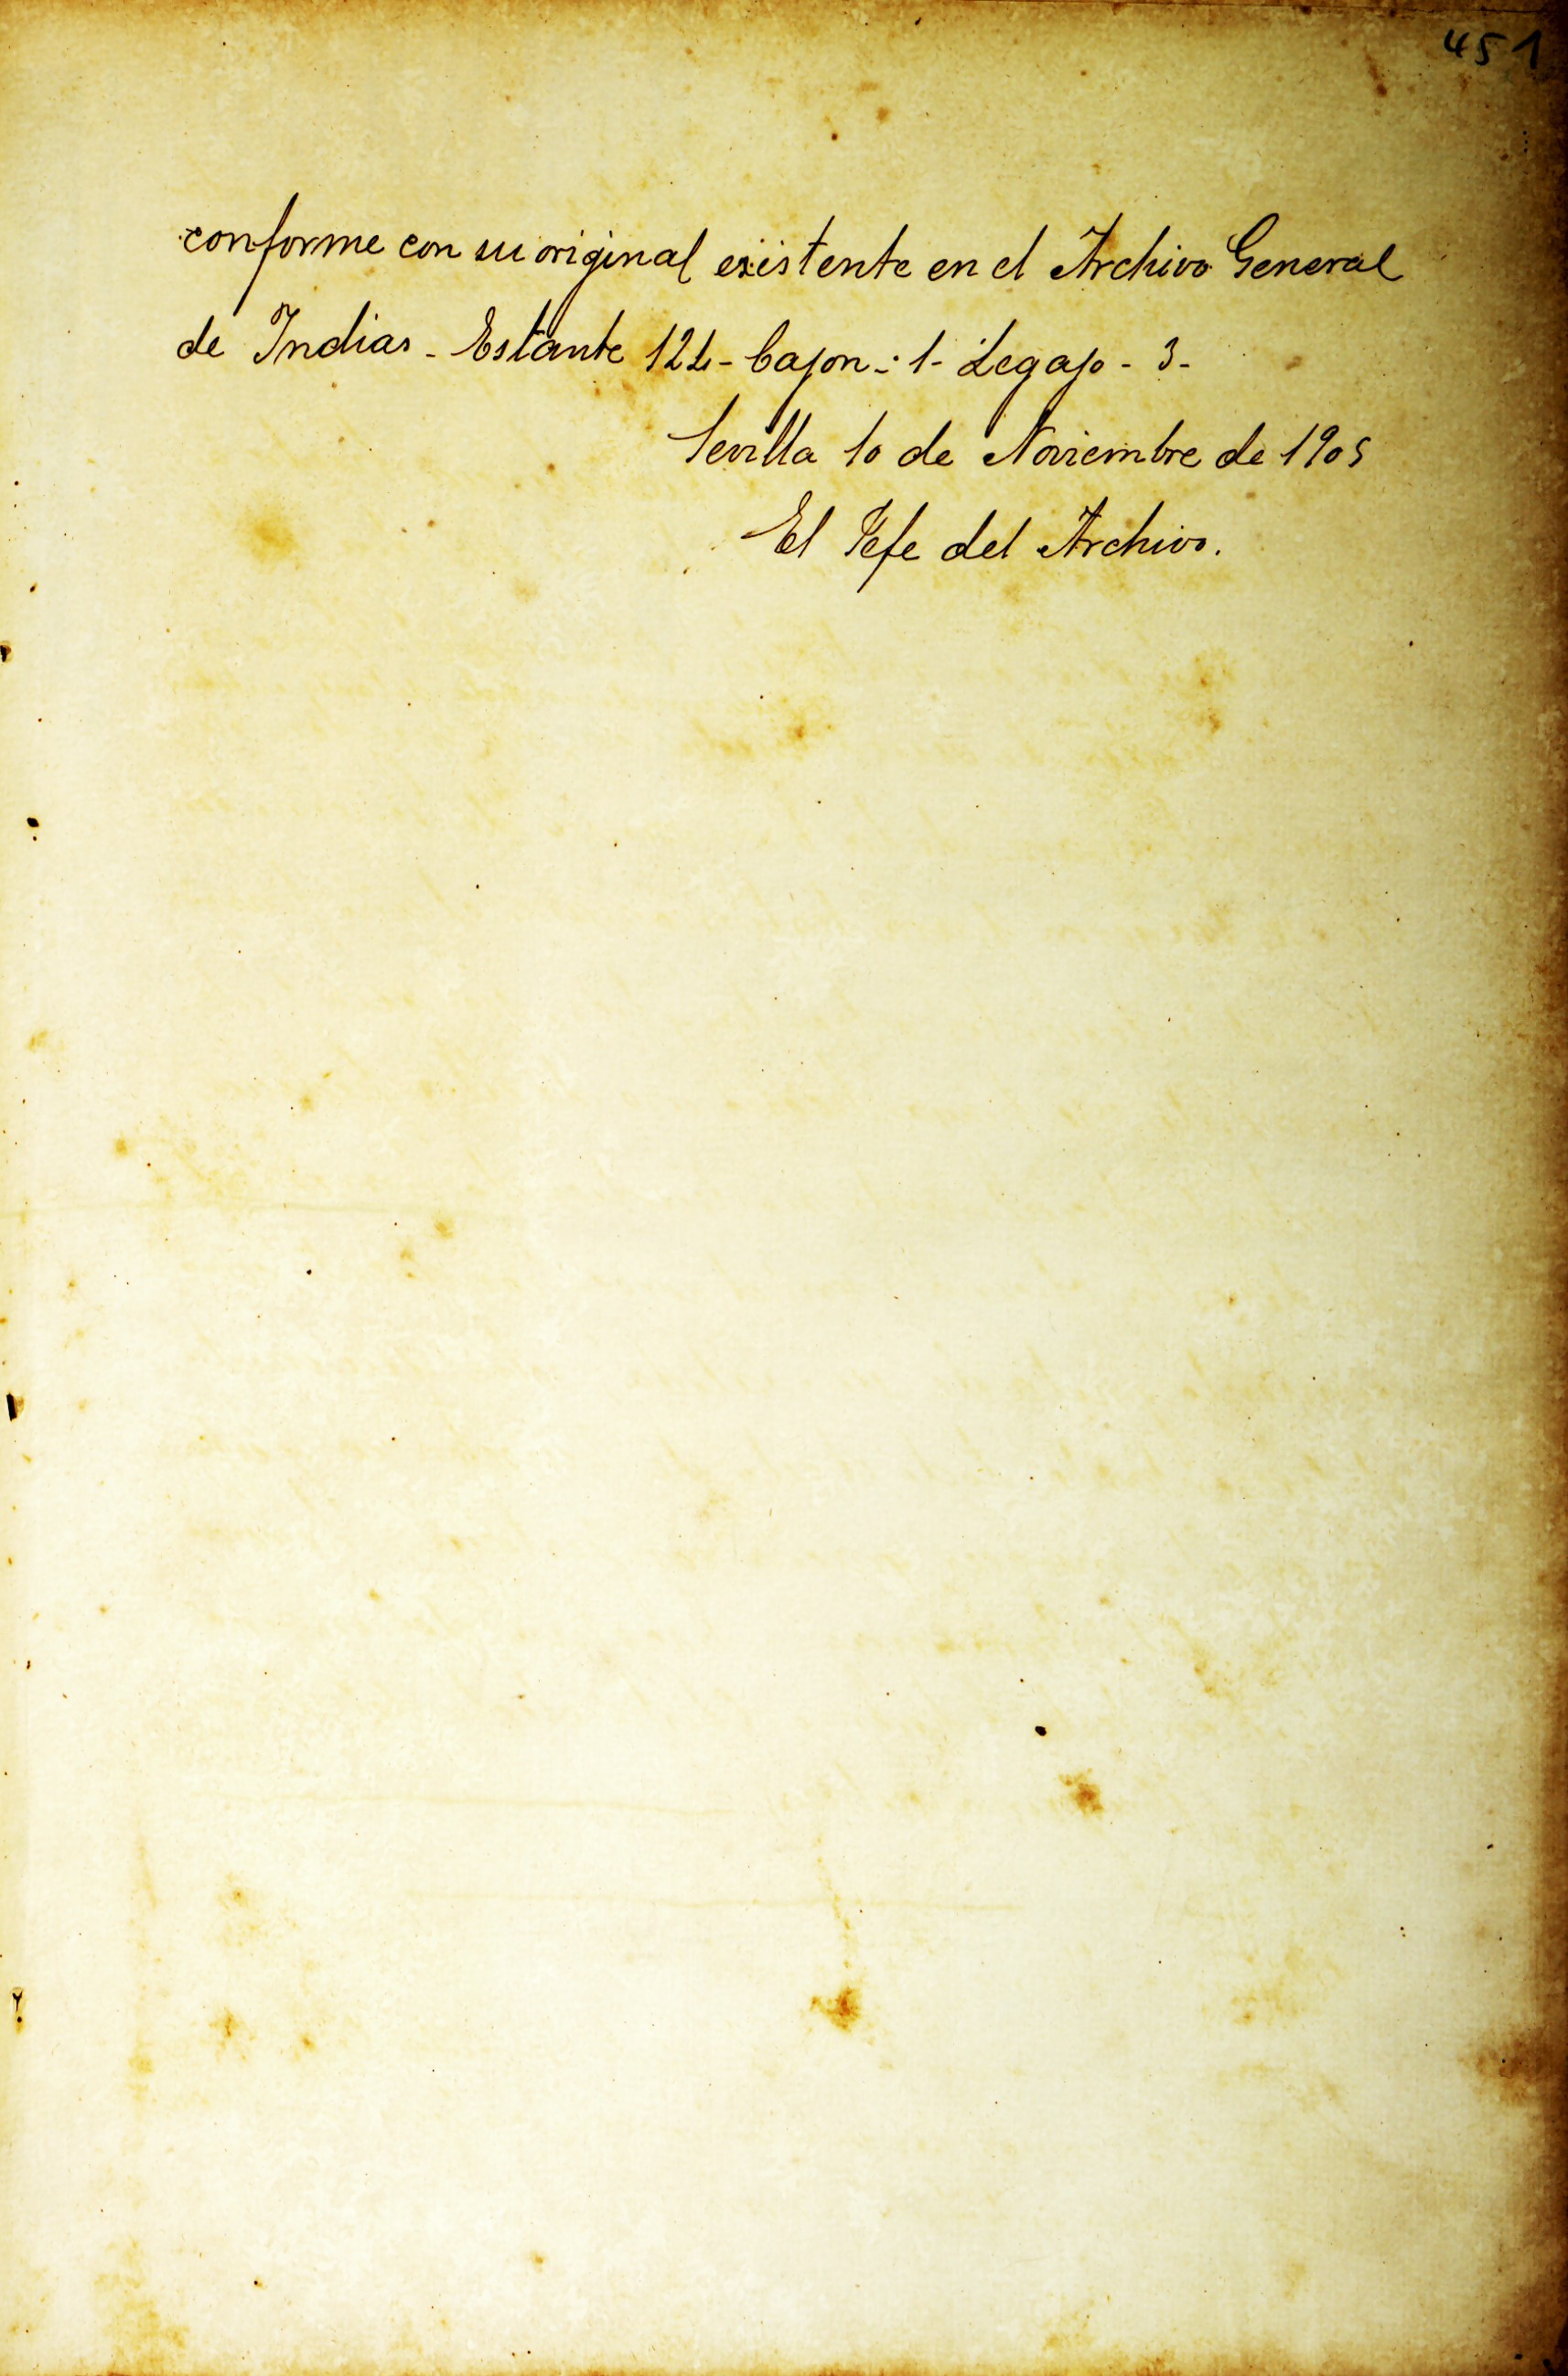 451
conforme con su original existente en el Archivo General
de Indias - Estante 124 - Cajon -: 1 - Legajo - 3 -
Sevilla 10 de Noviembre de 1905
El Jefe del Archivo.